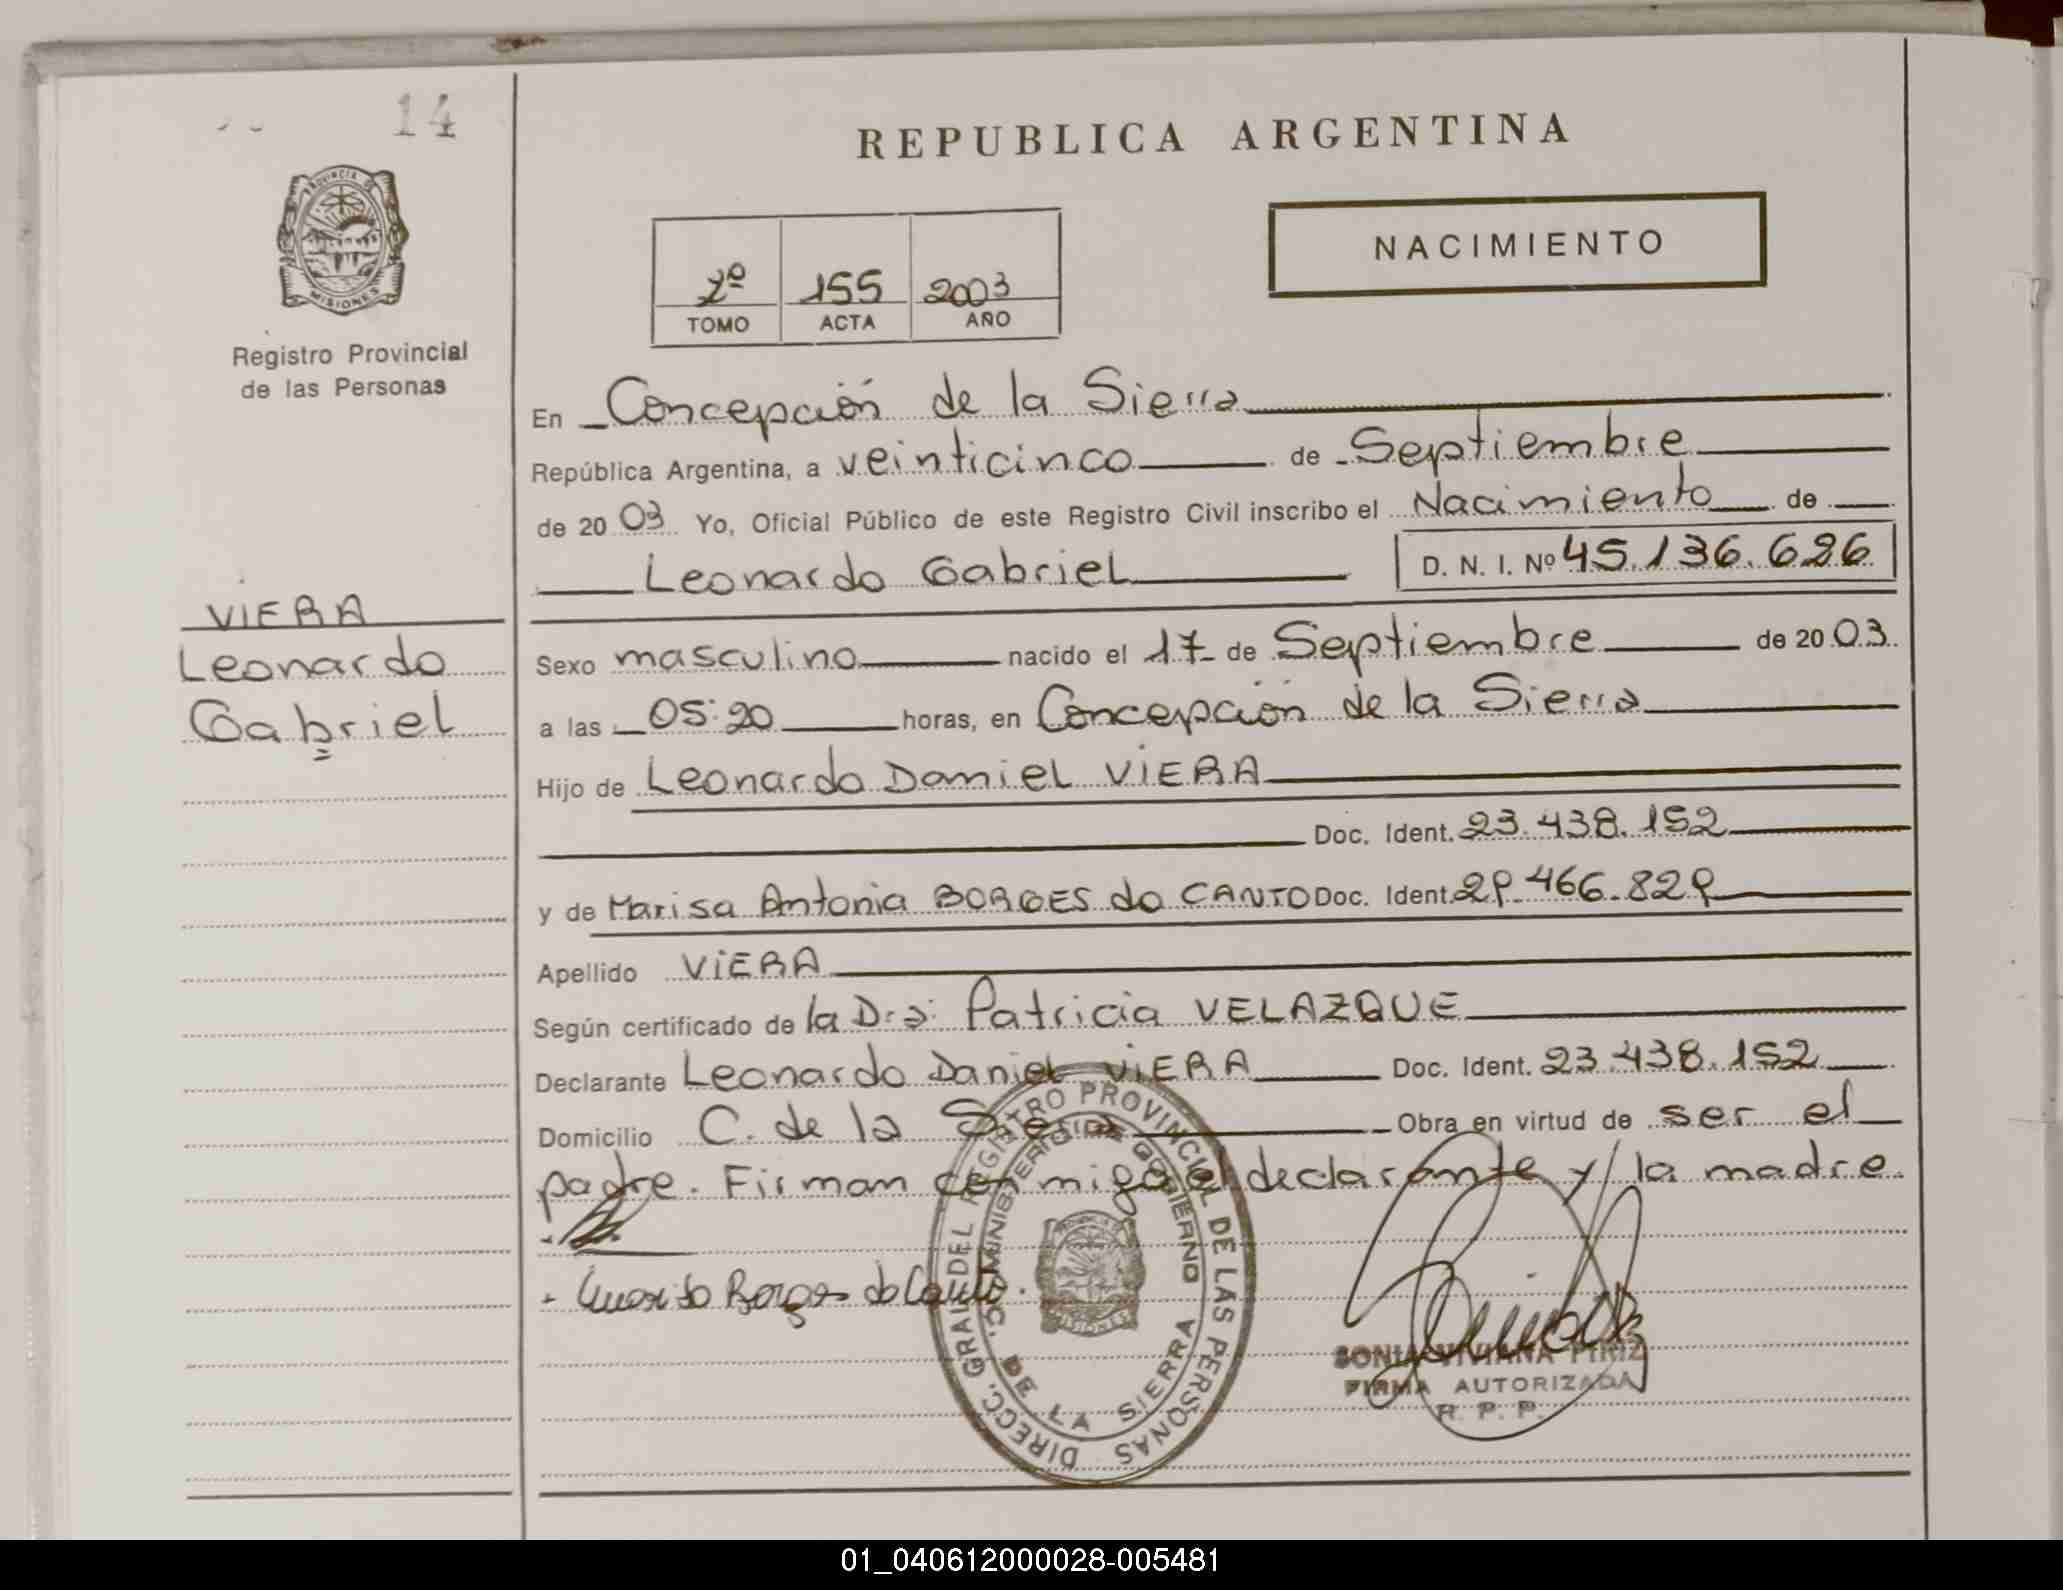 14
REPUBLICA ARGENTINA
NACIMIENTO
PROVINCIA DE
MISIONES
Registro Provincial
de las Personas
2º 155 2003
TOMO ACTA AÑO
En Concepción de la Sierra
República Argentina, a veinticinco de Septiembre
de 2003 Yo, Oficial Público de este Registro Civil inscribo el Nacimiento de
Leonardo Gabriel D. N. I. Nº 45.136.626
VIERA
Leonardo
Gabriel
Sexo masculino nacido el 17 de Septiembre de 2003
a las 05:20 horas, en Concepción de la Sierra
Hijo de Leonardo Daniel VIERA
Doc. Ident. 23.438.152
y de Marisa Antonia BORGES do CANTO Doc. Ident. 29.466.829
Apellido VIERA
Según certificado de la Dra: Patricia VELAZQUE
Declarante Leonardo Daniel VIERA Doc. Ident. 23.438.152
Domicilio C. de la Sierra Obra en virtud de ser el
padre. Firman con migo el declarante y la madre.
Borges do Canto
DIRECC. GRAL DEL REGISTRO PROVINCIAL DE LAS PERSONAS
MINISTERIO DE GOBIERNO
C. DE LA SIERRA
MISIONES
SONIA VIVIANA PIRIZ
FIRMA AUTORIZADA
R. P. P.
01_040612000028-005481